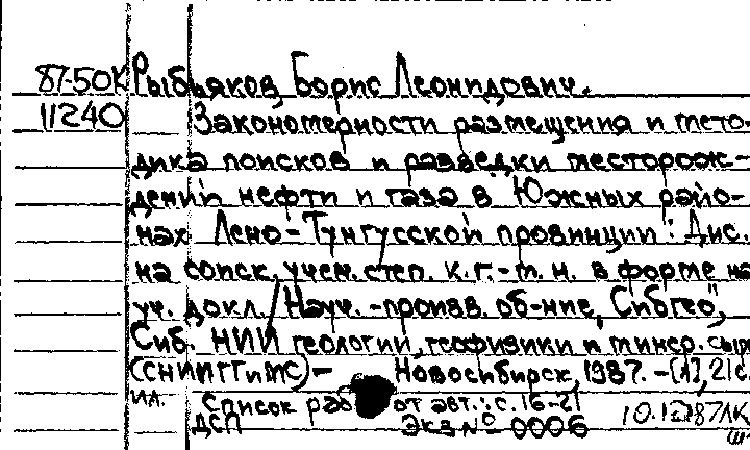 87-50К Рыбьяков, Борис Леонидович.
11240 Закономерности размещения и мето-
дика поисков и разведки месторож-
дений нефти и газа в Южных райо-
нах Лено-Тунгусской провинции: Дис.
на соиск. учен. степ. к.г.-м.н. в форме на
уч. докл./Науч.-произв. об-ние "Сибгео",
Сиб. НИИ геологии, геофизики и минер. сыр
(СНИИГГиМС) - Новосибирск, 1987. - [1], 21 с.
ил. Список раб от авт.: с. 16-21
ДСП Экз № 0006